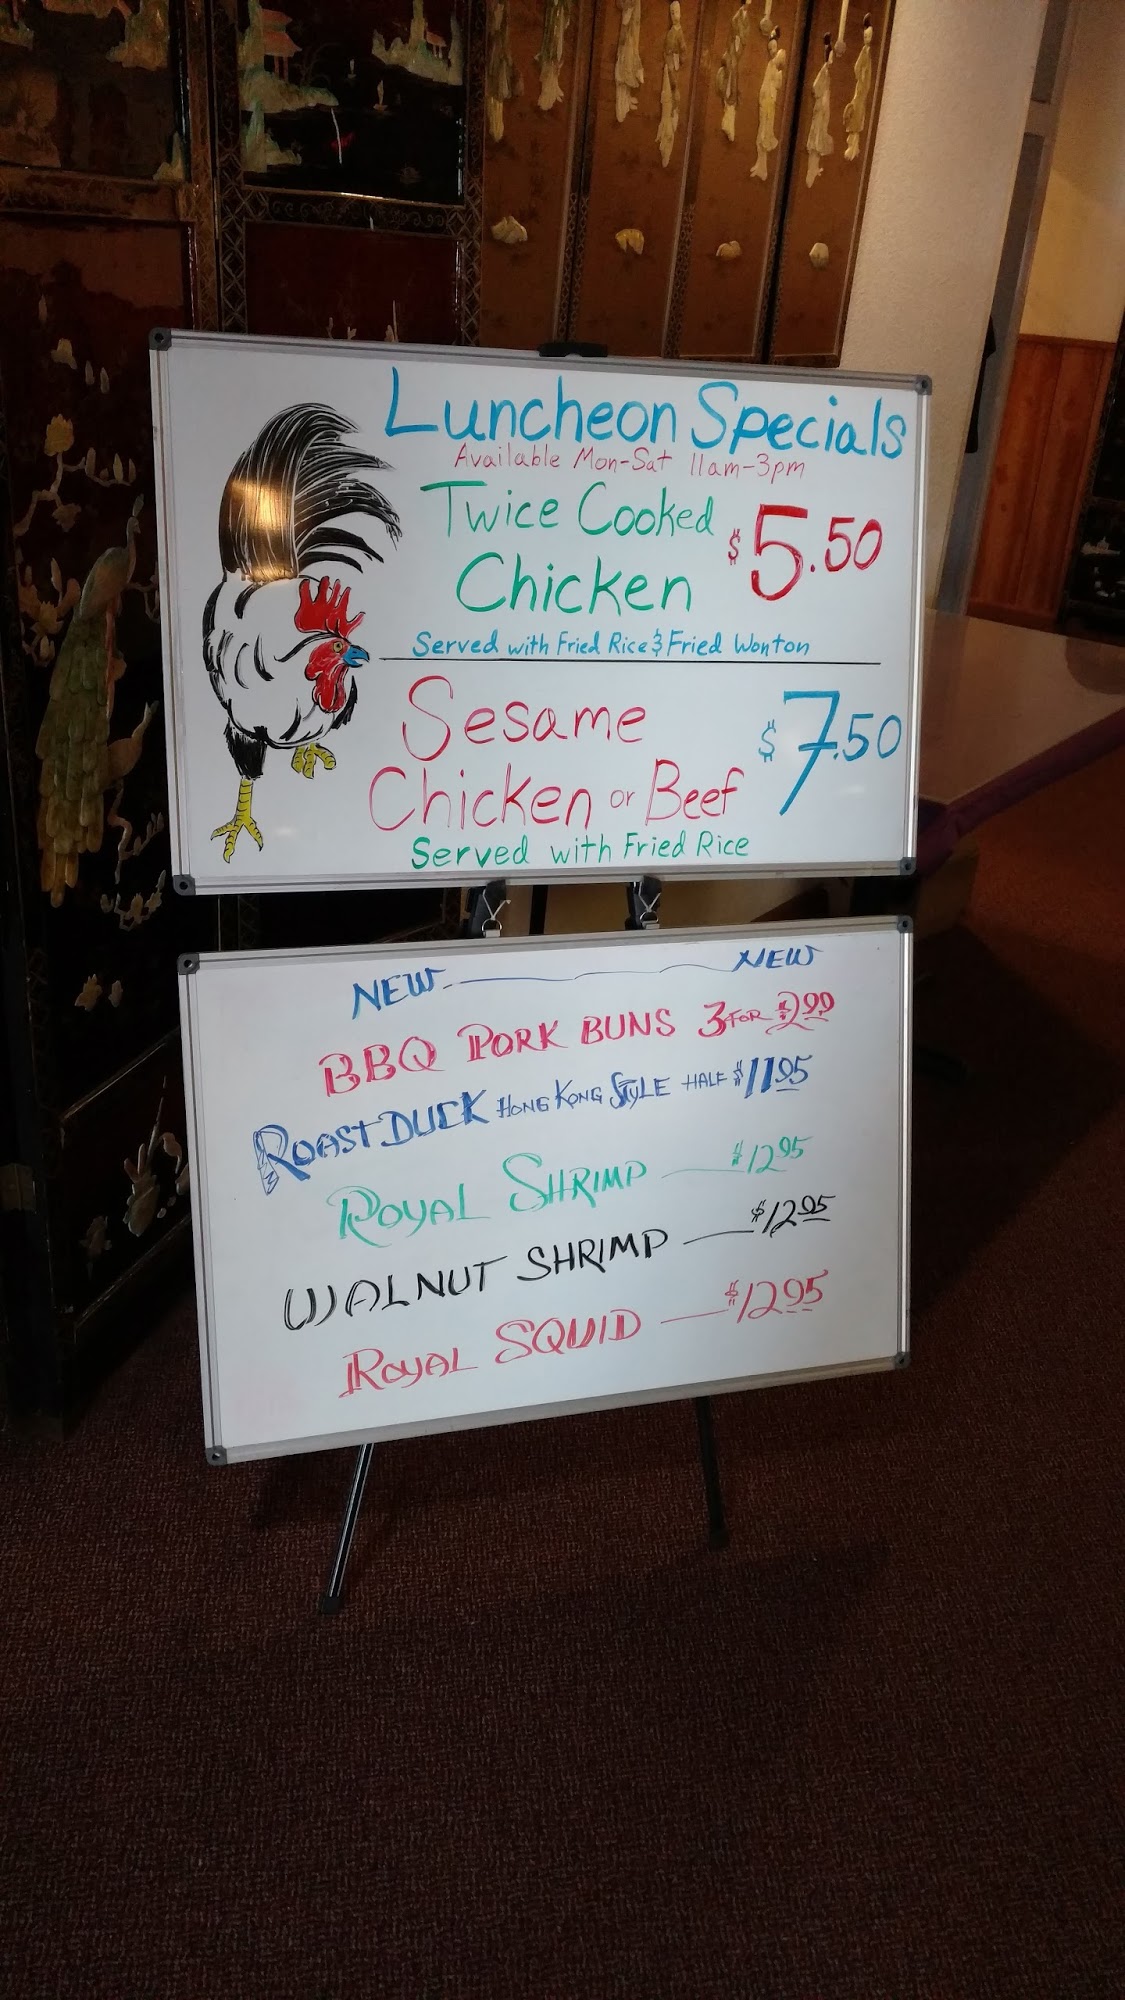 Luncheon Specials
Available Mon-Sat 11am-3pm
Twice Cooked
Chicken
$5.50
Served with Fried Rice & Fried Wonton
Sesame
Chicken or Beef
$7.50
Served with Fried Rice
NEW NEW
BBQ PORK BUNS 3 FOR $2.99
ROAST DUCK HONG KONG STYLE HALF $11.95
ROYAL SHRIMP $12.95
WALNUT SHRIMP $12.95
ROYAL SQUID $12.95